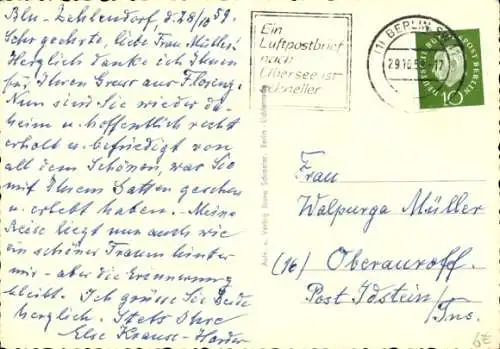 Bln-Zehlendorf d. 28/10 59.
Sehr geehrte, liebe Frau Müller!
Herzlich danke ich Ihnen
für Ihren Gruss aus Florenz.
Nun sind Sie wieder da-
heim u. hoffentlich recht
erholt u. befriedigt von
all dem Schönen, was Sie
mit Ihrem Gatten gesehen
u. erlebt haben. Meine
Reise liegt nun auch wie
ein schöner Traum hinter
mir - aber die Erinnerung
bleibt. Ich grüsse Sie beide
herzlich. Stets Ihre
Else Krauss-Harder
Ein
Luftpostbrief
nach
Übersee ist
schneller
(1) BERLIN
29.10.59-17
POST BERLIN
10
Frau
Walpurga Müller
(16) Oberauroff.
Post Idstein/
Tns.